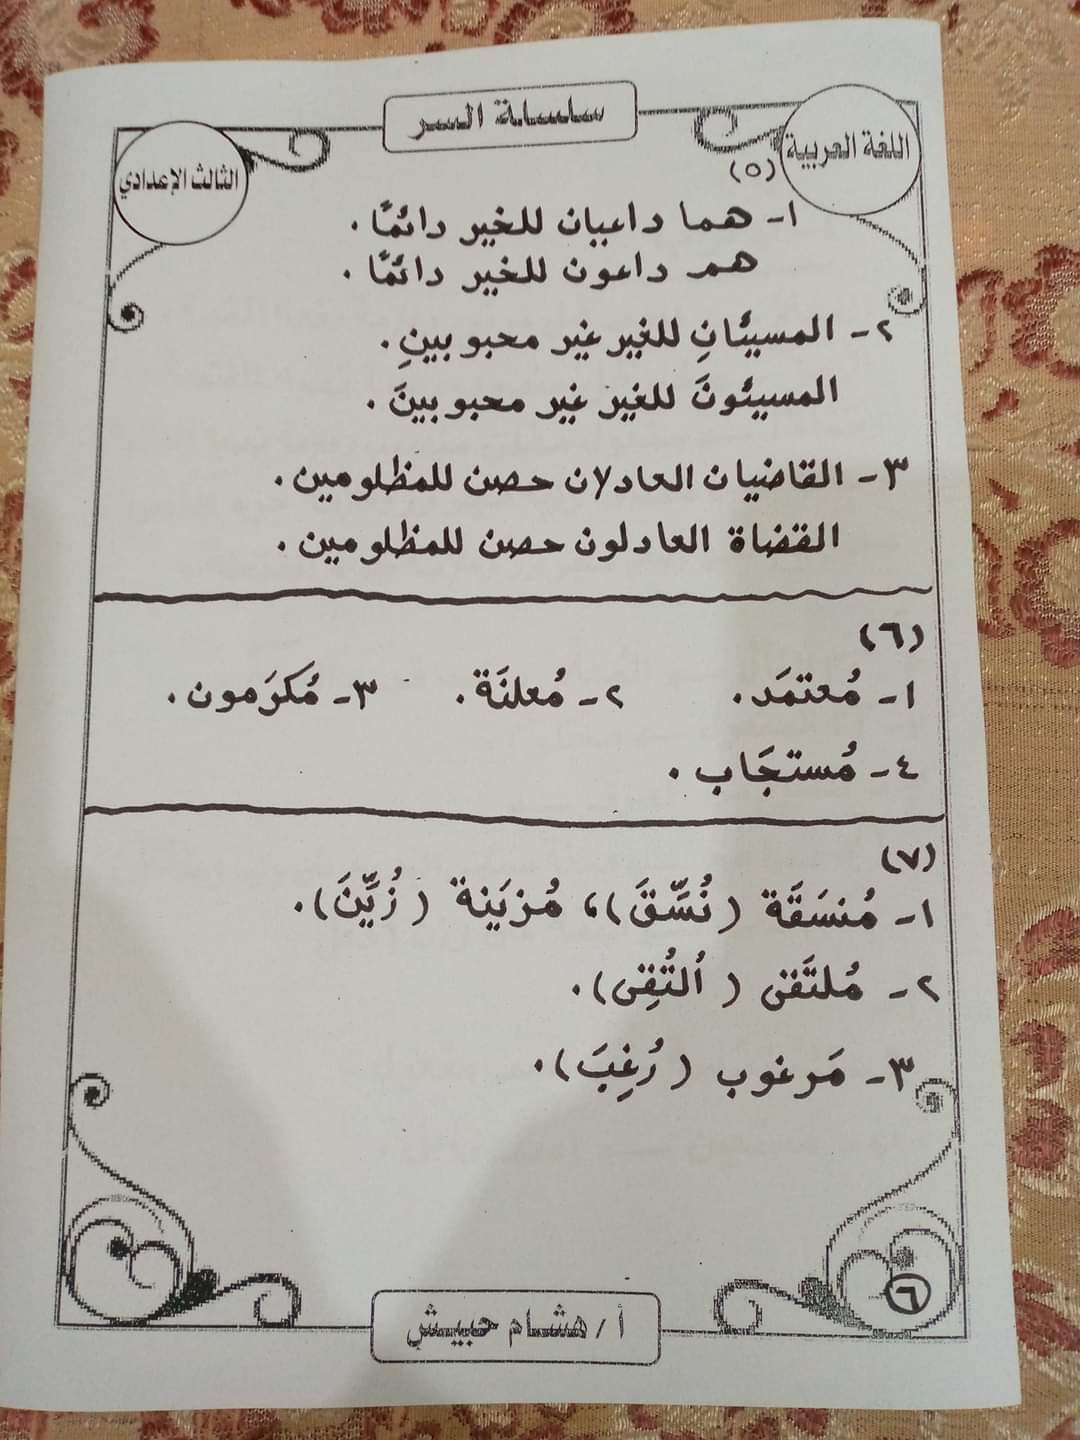 سلسلة السر
اللغة العربية
الثالث الإعدادي
(٥)
١- هما داعيان للخير دائمًا.
هم داعون للخير دائمًا.
٢- المسيئانِ للغير غير محبوبينِ.
المسيئونَ للغير غير محبوبينَ.
٣- القاضيان العادلان حصن للمظلومين.
القضاة العادلون حصن للمظلومين.
(٦)
١- مُعتمَد. ٢- مُعلنَة. ٣- مُكرَمون.
٤- مُستجَاب.
(٧)
١- مُنسَقَة (نُسِّقَ)، مُزيَنة (زُيِّنَ).
٢- مُلتَقى (اُلتُقِى).
٣- مَرغوب (رُغِبَ).
٦
أ/هشام حبيش